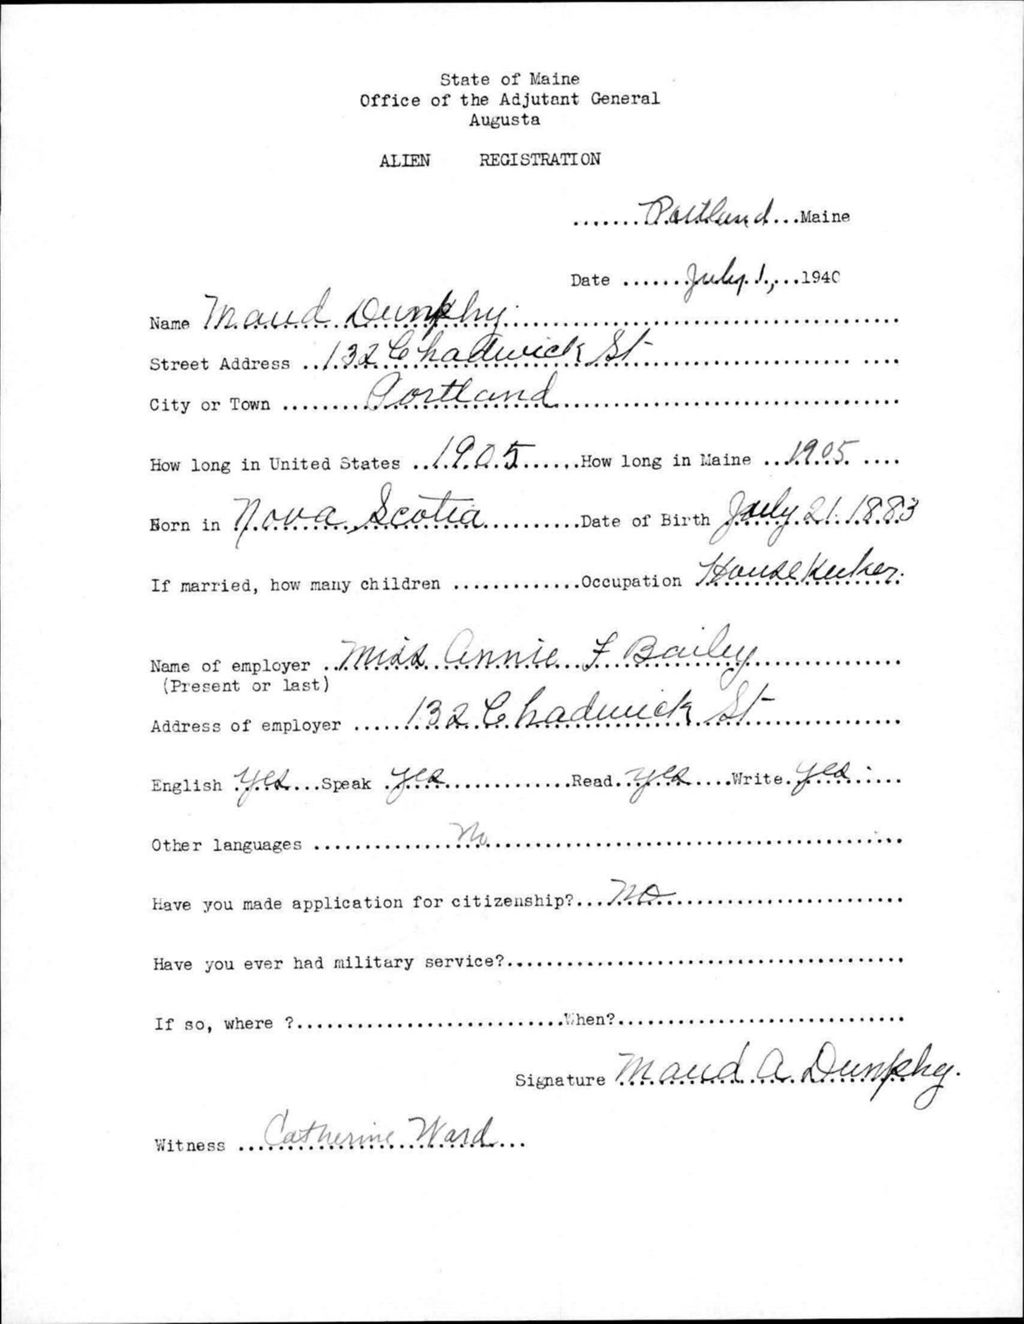 State of Maine
Office of the Adjutant General
Augusta
ALIEN REGISTRATION
.......Portland...Maine
Date .......July 1,...1940
Name Maud Dunphy
Street Address ..132 Chadwick St
City or Town ........Portland
How long in United States ..1905......How long in Maine ...1905....
Born in Nova Scotia..........Date of Birth July 21.1883
If married, how many children .............Occupation HouseKeeker.
Name of employer ..Miss Annie F Bailey
(Present or last)
Address of employer .....132 Chadwick St
English yes...Speak yes.............Read.yes....Write.yes.....
Other languages ..............No
Have you made application for citizenship?...NO
Have you ever had military service?
If so, where ?...........................When?
Signature Maud A Dunphy.
Witness ...Catherine Ward...